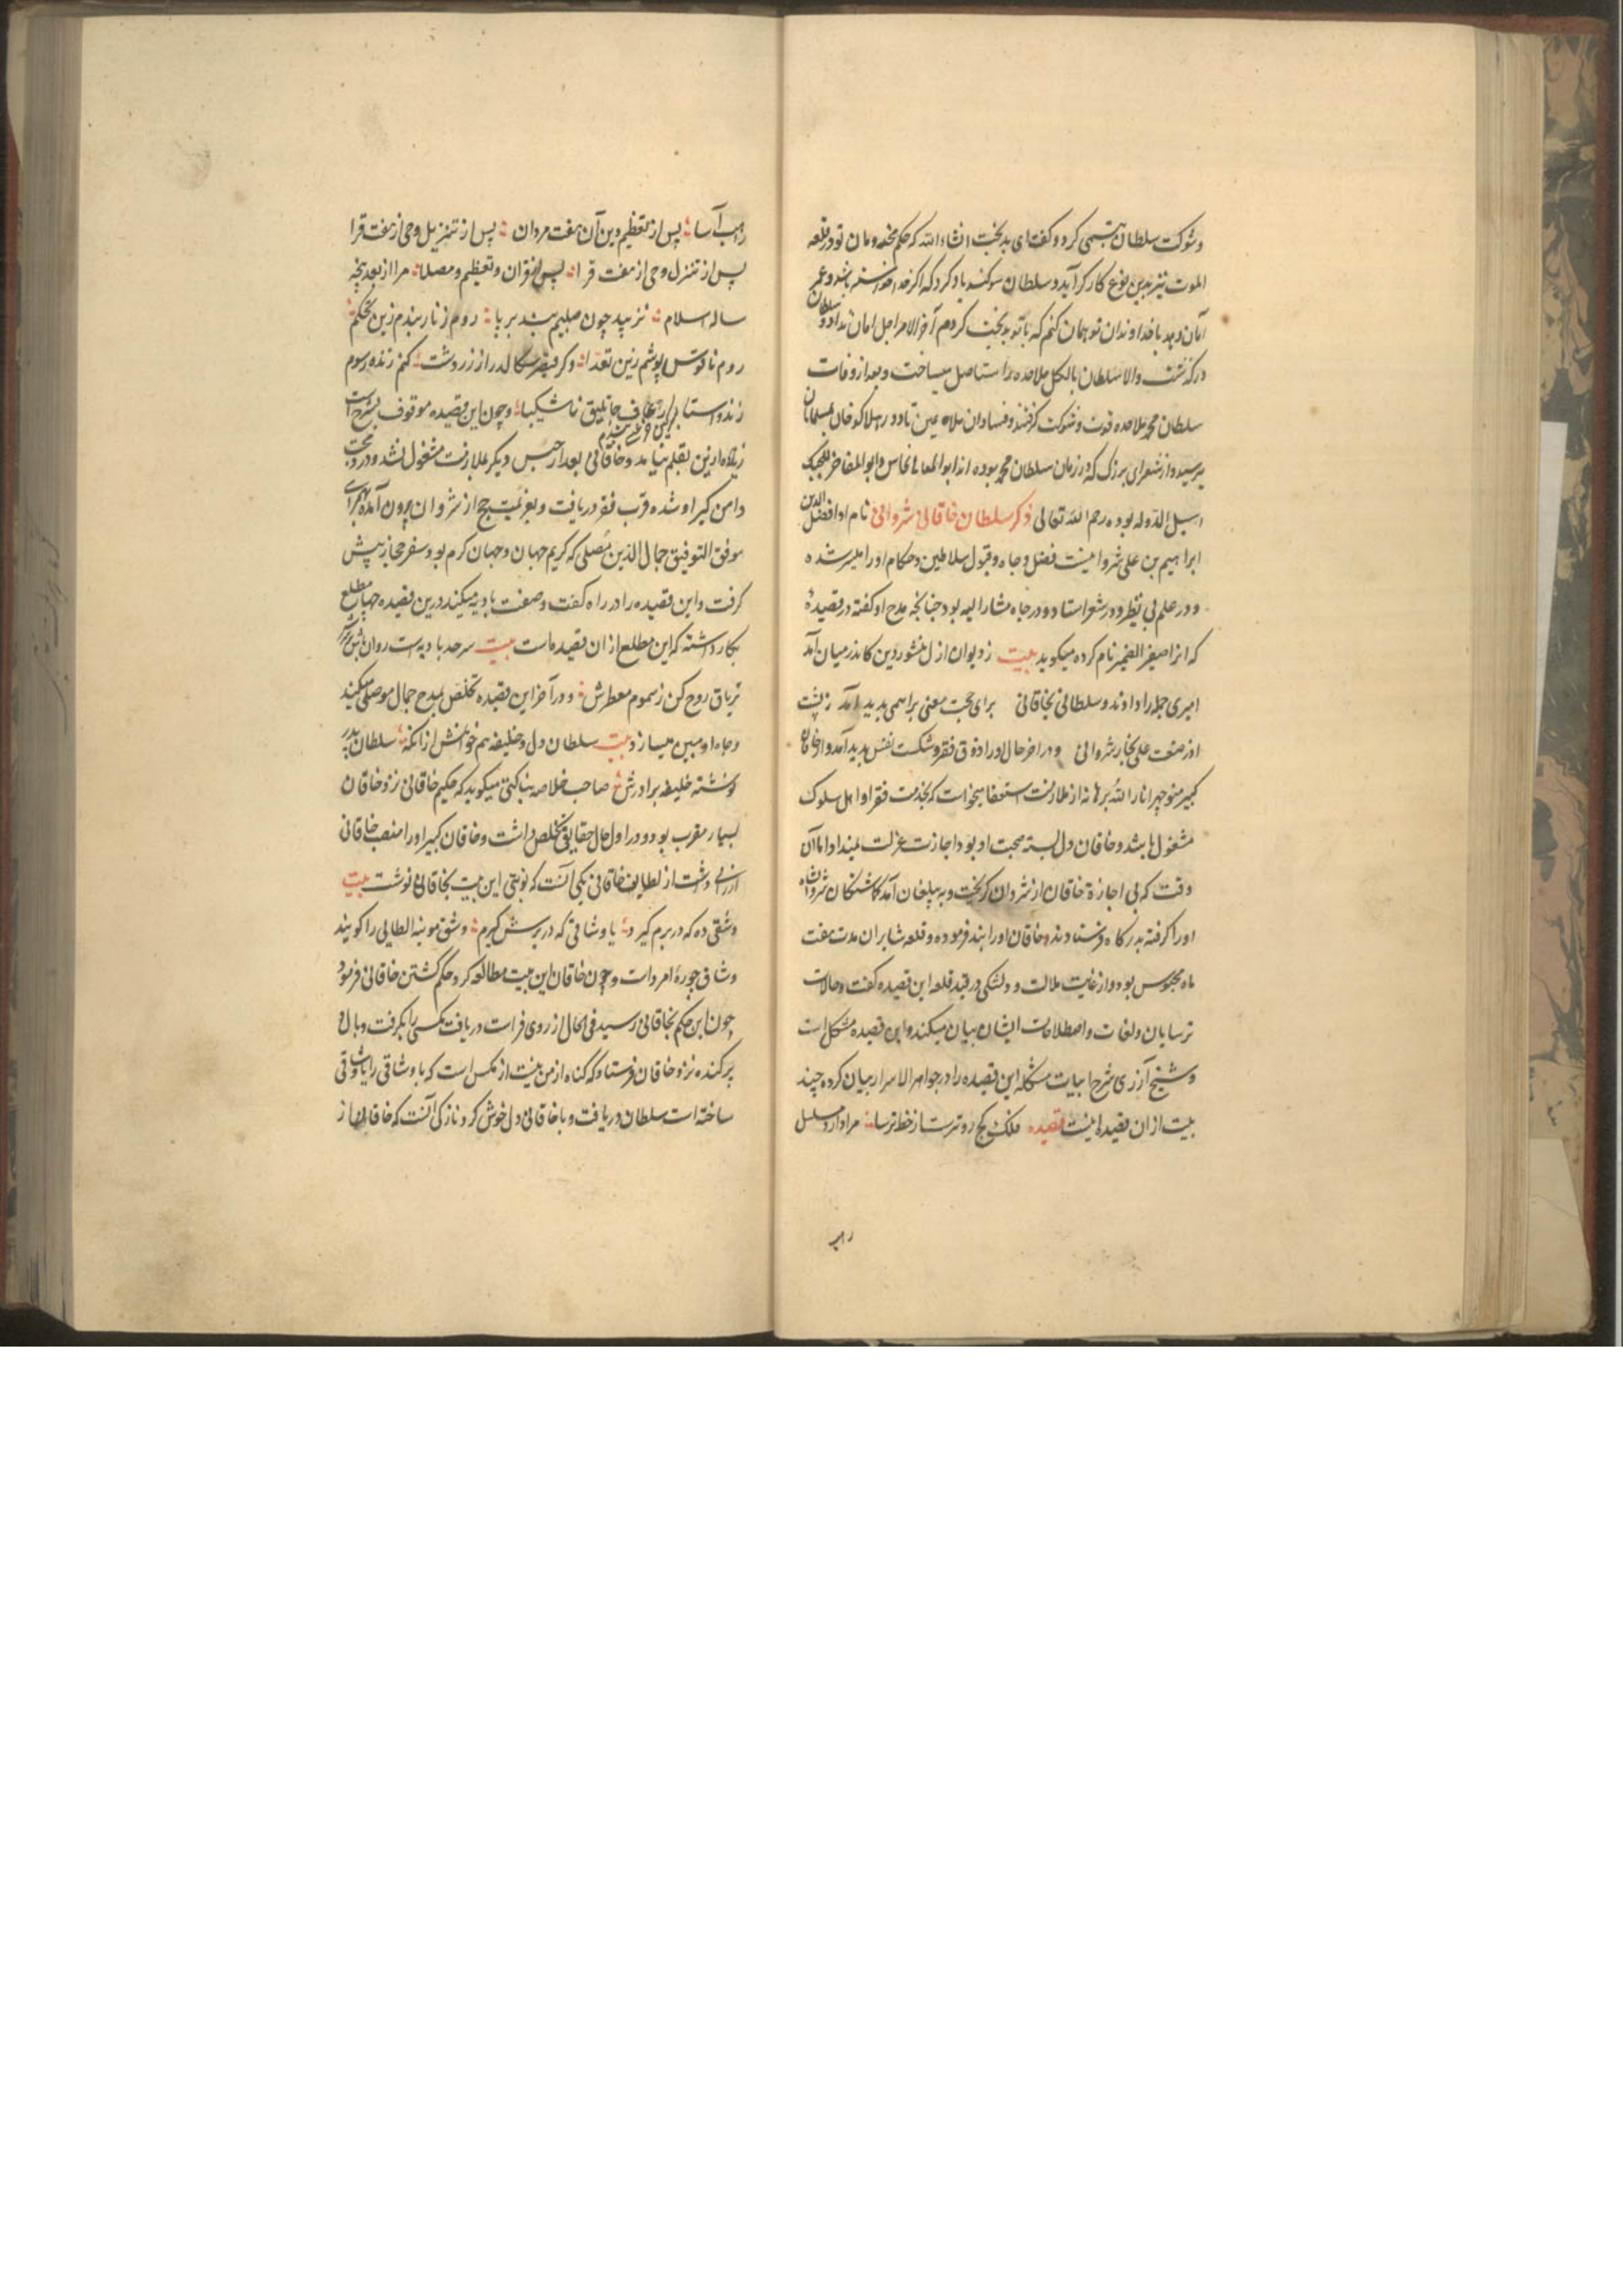 وشوکت سلطان تبسمی کرد و کفت ای بدبخت انشاء الله که حکم مخدومان تو در قلعه
الموت نیز بدین نوع کارکر آید و سلطان سوکند یاد کرد که اکر خدا خواسته باشد و عمر
امان دهد با خداوندان تو همان کنم که با تو بدبخت کردم آخر الامر اجل امان نداد و سلطان
درکذشت والا سلطان بالکل ملاحده را مستاصل میساخت و بعد از وفات
سلطان محمد ملاحده قوت و شوکت کرفتند و فساد ان ملاعین تا دور هلاکو خان بمسلمانان
میرسید و از شعرای بزرک که در زمان سلطان محمد بوده اند ابو المعالی نحاس و ابو المفاخر
اسبل الدوله بوده رحم الله تعالی ذکر سلطان خاقانی شروانی نام او افضل الدین
ابراهیم بن علی شروانیست فضل و جاه و قبول سلاطین و حکام او را میسر شده
و در علم بی نظیر و در شعر استاد و در جاه مشار الیه بود چنانچه مدح او کفته در قصیدهٔ
که انرا صفیر الضمیر نام کرده میکوید بیت ز دیوان ازل منشور دین کاندر میان آمد
امیری جمله را دادند و سلطانی بخاقانی برای حجت معنی براهیمی بدید آمد ز پشت
اوزصنعت علی نجار شروانی و در اخر حال او را ذوق فقر و شکست نفس بدید آمد و از خاقان
کبیر منوچهر انار الله برهانه از ملازمت استعفا میخواست که بخدمت فقرا و اهل سلوک
مشغول باشد و خاقان دل بسته صحبت او بود اجازت عزلت نمیداد اما آن
وقت که بی اجازهٔ خاقان از شروان کریخت و به بیلقان آمد کماشتکان شروانشاه
او را کرفته بدرکاه فرستادند و خاقان او را بند فرموده و قلعه شابران مدت هفت
ماه محبوس بود و از غایت ملالت و دلتنکی در قید قلعه این قصیده کفت و حالات
ترسایان و لغات و اصطلاحات ایشان بیان میکند و این قصیده مشکل است
و شیخ آزری شرح ابیات مشکله این قصیده را در جواهر الاسرار بیان کرده چند
بیت از ان قصیده اینست قصیده فلک کج روترست از خط ترسا مرا دارد مسلسل
راهب
راهب آسا پس از تعظیم دین آن هفت مردان پس از تنزیل وحی از هفت قرا
پس از تنزل وحی از هفت قرا پس از قران و تعظیم و مصلا مرا از بعد پنجه
ساله اسلام نزیبد چون صلیبم بند بر پا روم زنار بندم زین تحکم
روم ناقوس پوشم زین تعدا و کر قیصر سکالد راز زردشت کنم زنده رسوم
زند و استا جاثلیق ناشکیبا و چون این قصیده موقوف بشرح است
زیاده از این بقلم نیامد و خاقانی بعد از حبس دیکر بملازمت مشغول نشد و درد محبت
دامن کیر او شده قرب فقر دریافت و بعزیمت حج از شروان برون آمده بهمراهی
موفق التوفیق جمال الدین موصلی که کریم جهان و جهان کرم بود سفر حجاز پیش
کرفت و این قصیده را در راه کفت و صفت بادیه میکند درین قصیده چهار مطلع
بکار داشته که این مطلع از ان قصیده است بیت سرحد بادیه است روان باش بر سرش
تریاق روح کن ز سموم معطرش و در آخر این قصیده تخلص بمدح جمال موصلی میکند
و جاه او مبین میسازد بیت سلطان دل و خلیفه هم خوانمش از انکه سلطان پدر
نوشته خلیفه برادرش صاحب خلاصه بناکتی میکوید که حکیم خاقانی نزد خاقان
بسیار مقرب بود و در اول حال حقایقی تخلص داشت و خاقان کبیر او را منصب خاقانی
ارزانی داشت از لطایف خاقانی یکی آنست که نوبتی این بیت بخاقان نوشت بیت
وشقی ده که در برم کیرد یا وشاقی که در برش کیرم وشق موینه الطایی را کویند
وشاق چورهٔ امرد است و چون خاقان این بیت مطالعه کرد حکم کشتن خاقانی فرمود
چون این حکم بخاقانی رسید فی الحال از روی فراست دریافت مکسی را بکرفت و بال او
برکنده نزد خاقان فرستاد که کناه از من نیست از مکس است که با وشاقی را یا وشاقی
ساخته است سلطان دریافت و با خاقانی دل خوش کرد نازکی آنست که خاقانی از